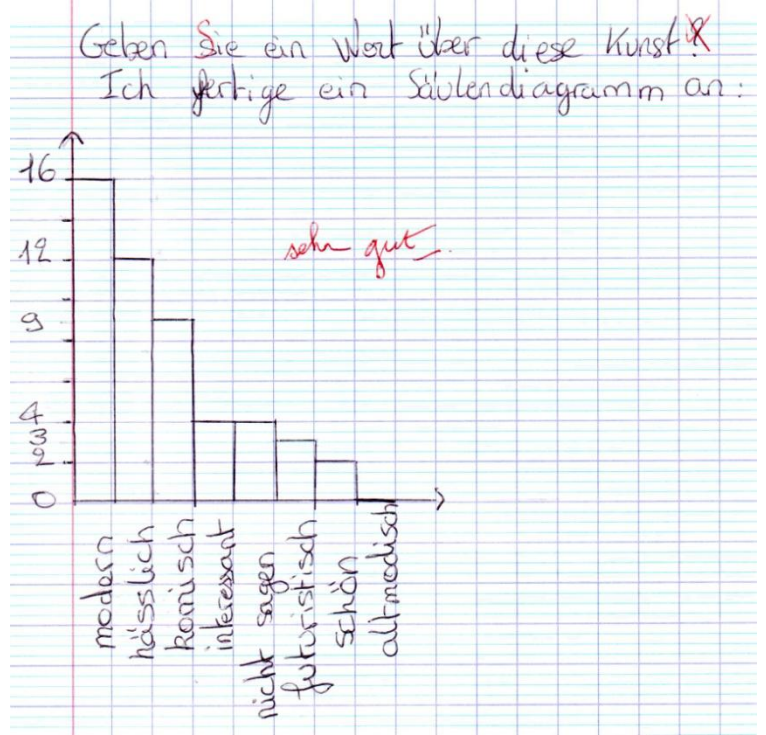 Geben Sie ein Wort über diese Kunst!
Ich fertige ein Säulendiagramm an:
16
12
sehr gut
9
4
3
2
0
modern
hässlich
komisch
interessant
nicht sagen
futuristisch
schön
altmodisch